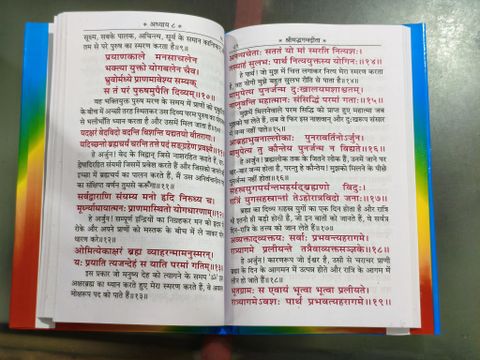 * अध्याय ८ *
सूक्ष्म, सबके पालक, अचिन्त्य, सूर्य के समान कान्तिमान
तम से परे पुरुष का स्मरण करता है॥९॥
प्रयाणकाले मनसाचलेन
भक्त्या युक्तो योगबलेन चैव।
भ्रुवोर्मध्ये प्राणमावेश्य सम्यक्
स तं परं पुरुषमुपैति दिव्यम्॥१०॥
यह भक्तियुक्त पुरुष मरण के समय में प्राणों को भृकुटी
के बीच में अच्छी तरह स्थिरकर उस दिव्य परम पुरुष का योगबल
से भलीभाँति ध्यान करता है और उसमें मिल जाता है।
यदक्षरं वेदविदो वदन्ति विशन्ति यद्यतयो वीतरागाः।
यदिच्छन्तो ब्रह्मचर्यं चरन्ति तत्ते पदं सङ्ग्रहेण प्रवक्ष्ये॥
हे अर्जुन! वेद के विद्वान् जिसे नाशरहित कहते हैं,
द्वेषादिरहित संयमी जिसमें प्रवेश करते हैं और जिसको जानने की
इच्छा में ब्रह्मचर्य का पालन करते हैं, मैं उस अनिर्वचनीय
का संक्षिप्त वर्णन तुमसे करूँगा॥११॥
सर्वद्वाराणि संयम्य मनो हृदि निरुध्य च।
मूर्ध्न्याधायात्मनः प्राणमास्थितो योगधारणाम्॥१२॥
हे अर्जुन! सम्पूर्ण इन्द्रियों का निग्रहकर मन को हृदय
रोके और अपने प्राणों को मस्तक के बीच में ले जाकर
धारण करे॥१२॥
ओमित्येकाक्षरं ब्रह्म व्याहरन्मामनुस्मरन्।
यः प्रयाति त्यजन्देहं स याति परमां गतिम्॥१३॥
इस प्रकार जो मनुष्य देह को त्यागने के समय 'ॐ'
अक्षरब्रह्म का ध्यान करते हुए मेरा स्मरण करते हैं, वे
मोक्षरूप पद को पाते हैं॥१३॥
* श्रीमद्भगवद्गीता *
अनन्यचेताः सततं यो मां स्मरति नित्यशः।
तस्याहं सुलभः पार्थ नित्ययुक्तस्य योगिनः॥१४॥
हे पार्थ! जो मुझ में चित्त लगाकर नित्य मेरा स्मरण करता
है, उस नित्य योगी को मैं बहुत सुलभ रीति से पाता हूँ॥१४॥
मामुपेत्य पुनर्जन्म दुःखालयमशाश्वतम्।
नाप्नुवन्ति महात्मानः संसिद्धिं परमां गताः॥१५॥
मुझमें मिलनेवाले परम सिद्धि को प्राप्त हुए महात्मा जब
मुझको पा लेते हैं, तब वे फिर इस नाशवान् और दुःखरूप संसार
में जन्म नहीं पाते॥१५॥
आब्रह्मभुवनाल्लोकाः पुनरावर्तिनोऽर्जुन।
मामुपेत्य तु कौन्तेय पुनर्जन्म न विद्यते॥१६॥
हे अर्जुन! ब्रह्मलोक तक के जितने लोक हैं, उनमें जाने पर
बार-बार जन्म होता है, परन्तु हे कौन्तेय! मुझको मिलने के पीछे
पुनर्जन्म नहीं होता॥१६॥
सहस्रयुगपर्यन्तमहर्यद्ब्रह्मणो विदुः।
रात्रिं युगसहस्रान्तां तेऽहोरात्रविदो जनाः॥१७॥
ब्रह्मा का दिन सहस्र युगों का एक दिन होता है और रात्रि
भी इतनी ही बड़ी होती है, जो इन बातों को जानते हैं, वे सर्वज्ञ
दिन-रात्रि के तत्त्व को जान लेते हैं॥१७॥
अव्यक्ताद्व्यक्तयः सर्वाः प्रभवन्त्यहरागमे।
रात्र्यागमे प्रलीयन्ते तत्रैवाव्यक्तसञ्ज्ञके॥१८॥
हे अर्जुन! कारणरूप जो ईश्वर हैं, उसी से चराचर प्राणी
ब्रह्मा के दिन के आगमन में उत्पन्न होते और रात्रि के आगमन
में लीन हो जाते हैं॥१८॥
भूतग्रामः स एवायं भूत्वा भूत्वा प्रलीयते।
रात्र्यागमेऽवशः पार्थ प्रभवत्यहरागमे॥१९॥